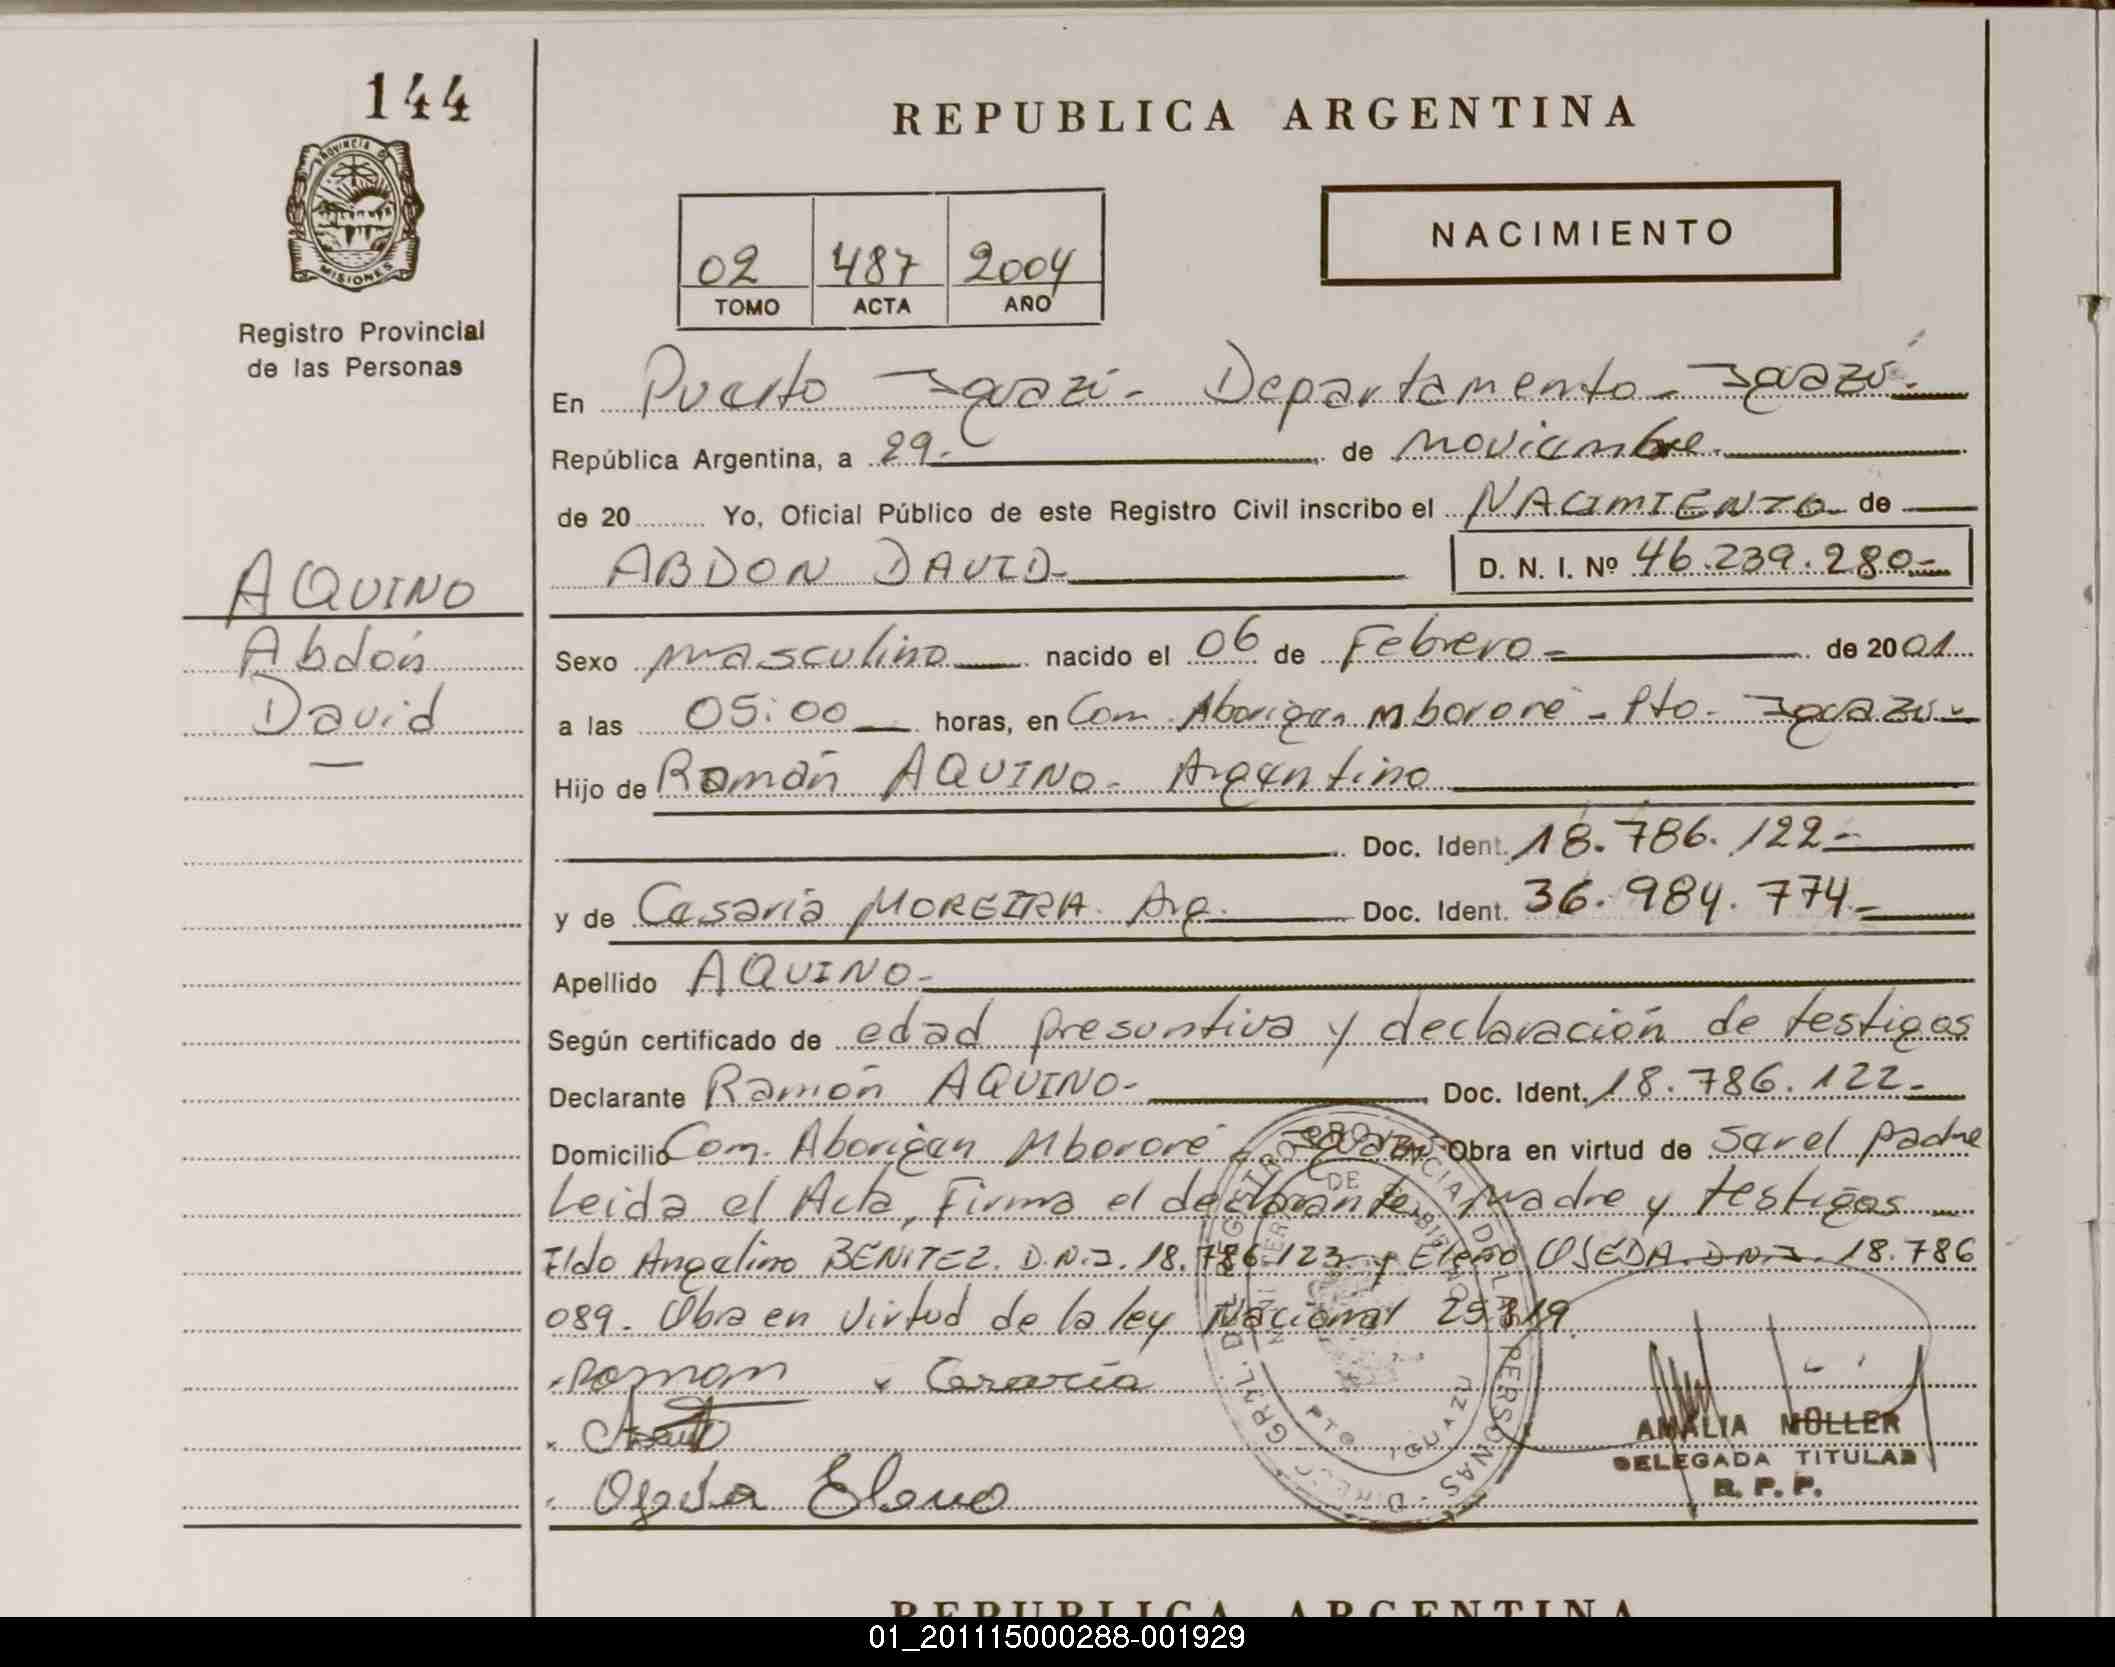 144
REPUBLICA ARGENTINA
PROVINCIA DE
MISIONES
Registro Provincial
de las Personas
02 487 2004
TOMO ACTA AÑO
NACIMIENTO
En Puerto Iguazú - Departamento - Iguazú -
República Argentina, a 29 - de noviembre -
de 20 ......... Yo, Oficial Público de este Registro Civil inscribo el NACIMIENTO de
ABDON DAVID - D. N. I. Nº 46.239.280 -
AQUINO
Abdón
David
Sexo masculino nacido el 06 de Febrero - de 2001
a las 05:00 horas, en Com. Aborigen Mbororé - Pto. Iguazú -
Hijo de Román AQUINO - Argentino
Doc. Ident. 18.786.122 -
y de Cesaria MOREIRA. Arg. Doc. Ident. 36.984.774 -
Apellido AQUINO -
Según certificado de edad presuntiva y declaración de testigos
Declarante Ramón AQUINO - Doc. Ident. 18.786.122 -
Domicilio Com. Aborigen Mbororé - Iguazú Obra en virtud de ser el padre
Leida el Acta, Firma el declarante, Madre y testigos
Eldo Angelino BENITEZ. D.N.I. 18.786.123 y Eleno OSEDA D.N.I. 18.786
089. Obra en Virtud de la ley Nacional 25.819.
Roman x Cesaria
Oseda Eleno
AMALIA MÜLLER
DELEGADA TITULAR
R. P. P.
PTO. IGUAZU
REPUBLICA ARGENTINA
01_201115000288-001929